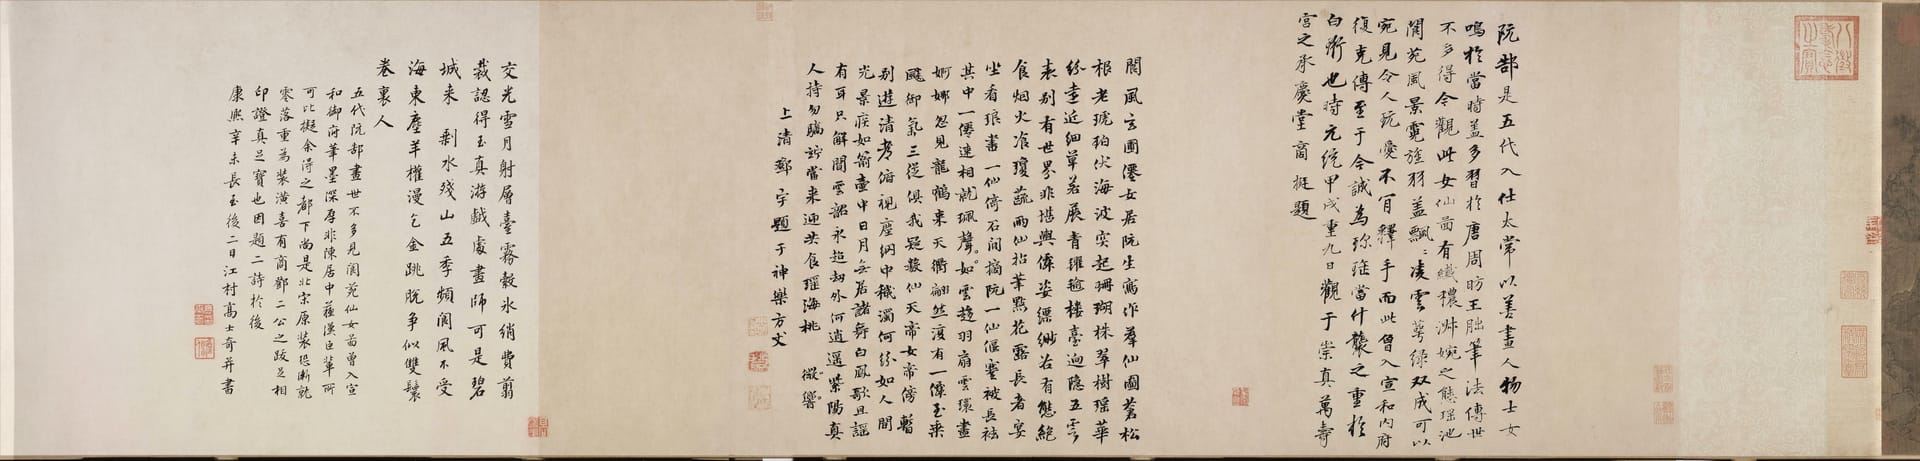 阮郜是五代入仕太常以善畫人物士女
鳴於當時蓋多習於唐周昉王朏筆法傳世
不多得今觀此女仙圖有纖穠淋婉之態瑶池
閬苑風景霓旌羽蓋飄飄凌雲萼綠双成可以
宛見令人玩愛不肎釋手而此曾入宣和内府
復克傳至于今誠為珎璀當什襲之重於
白珩也時元統甲戌重九日觀于崇真萬壽
宮之承慶堂商挺題
閬風玄圃僊女居阮生寫作羣仙圖蒼松
根老琥珀伏海波突起珊瑚株翠樹瑶華
紛遠近細草若展青氍毹樓臺迴隱五雲
表别有世界非堪輿僊姿縹緲右有態絶
食烟火准瓊蔬兩仙拈筆點花露長者宴
坐看琅書一仙倚石闲摘阮一仙偃蹇被長袪
其中一僊連相就珮聲如雲趍羽扇雲環畫
婀娜忽見龍鶴来天衢翩然復有一僊至乘
飈御氣三從俱我疑数仙天帝女帝傍暫
别逰清都俯視塵網中穢濁何紛如人間
光景疾如箭壷中日月無居諸舞白鳳歌且謡
有耳只解聞雲韶永超劫外何逍遥紫陽真
人持勿騙訴當来迎共食瑶海桃 微響
上清鄧宇題于神樂方丈
交光雪月射層臺霧縠氷綃費剪
裁認得玉真游戯處畫師可是碧
城来 剩水殘山五季頻閬風不受
海東塵羊權漫乞金跳脱争似雙鬟
卷裏人
五代阮郜畫世不多見閬苑仙女啚曽入宣
和御府筆墨深厚非陳居中蘓漢臣輩所
可比擬余淂之都下尚是北宗原装恐漸就
零落重為装潢喜有商鄧二公之跋足相
印證真足寶也因題二詩於後
康熙辛未長至後二日江村髙士奇并書